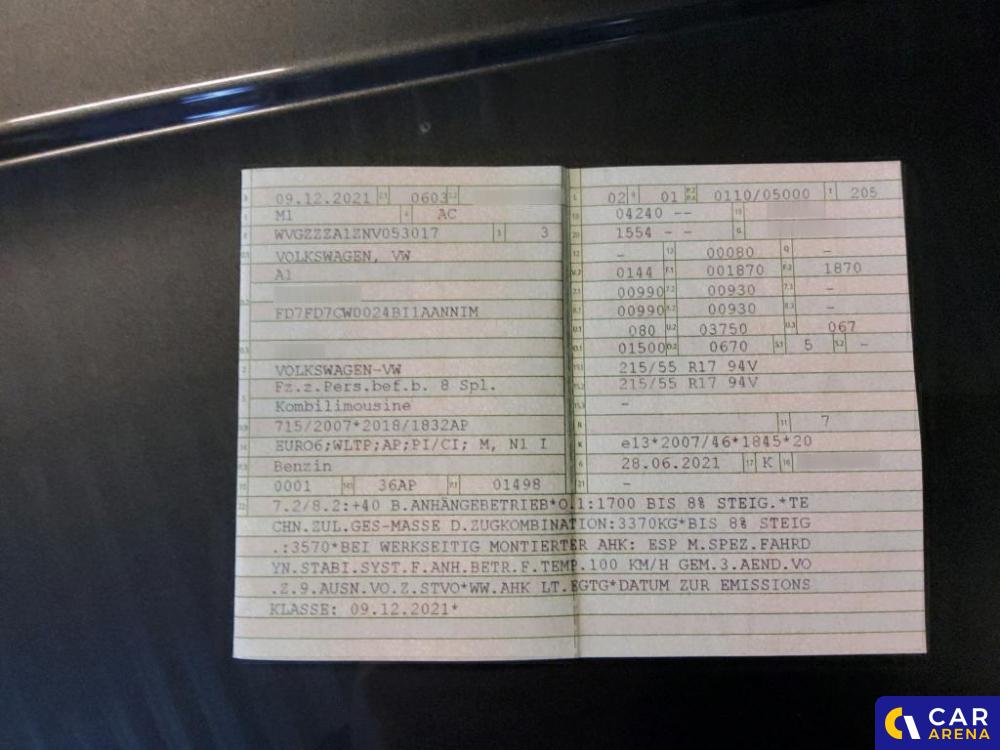 09.12.2021 2.1 0603 2.2
M1 AC
WVGZZZA1ZNV053017 3 3
VOLKSWAGEN, VW
A1
FD7FD7CW0024BI1AANNIM
VOLKSWAGEN-VW
Fz.z.Pers.bef.b. 8 Spl.
Kombilimousine
715/2007*2018/1832AP
EURO6;WLTP;AP;PI/CI; M, N1 I
Benzin
0001 36AP P.1 01498
02 01 0110/05000 T 205
04240 --
1554 -- G
- 13 00080 Q -
0144 F.1 001870 F.2 1870
7.1 00990 7.2 00930 7.3 -
8.1 00990 8.2 00930 8.3 -
U.1 080 U.2 03750 U.3 067
O.1 01500 O.2 0670 S.1 5 S.2 -
215/55 R17 94V
215/55 R17 94V
-
R 11 7
K e13*2007/46*1845*20
6 28.06.2021 17 K 16
21 -
22 7.2/8.2:+40 B.ANHÄNGEBETRIEB*O.1:1700 BIS 8% STEIG.*TE
CHN.ZUL.GES-MASSE D.ZUGKOMBINATION:3370KG*BIS 8% STEIG
.:3570*BEI WERKSEITIG MONTIERTER AHK: ESP M.SPEZ.FAHRD
YN.STABI.SYST.F.ANH.BETR.F.TEMP.100 KM/H GEM.3.AEND.VO
.Z.9.AUSN.VO.Z.STVO*WW.AHK LT.EGTG*DATUM ZUR EMISSIONS
KLASSE: 09.12.2021*
CAR
ARENA